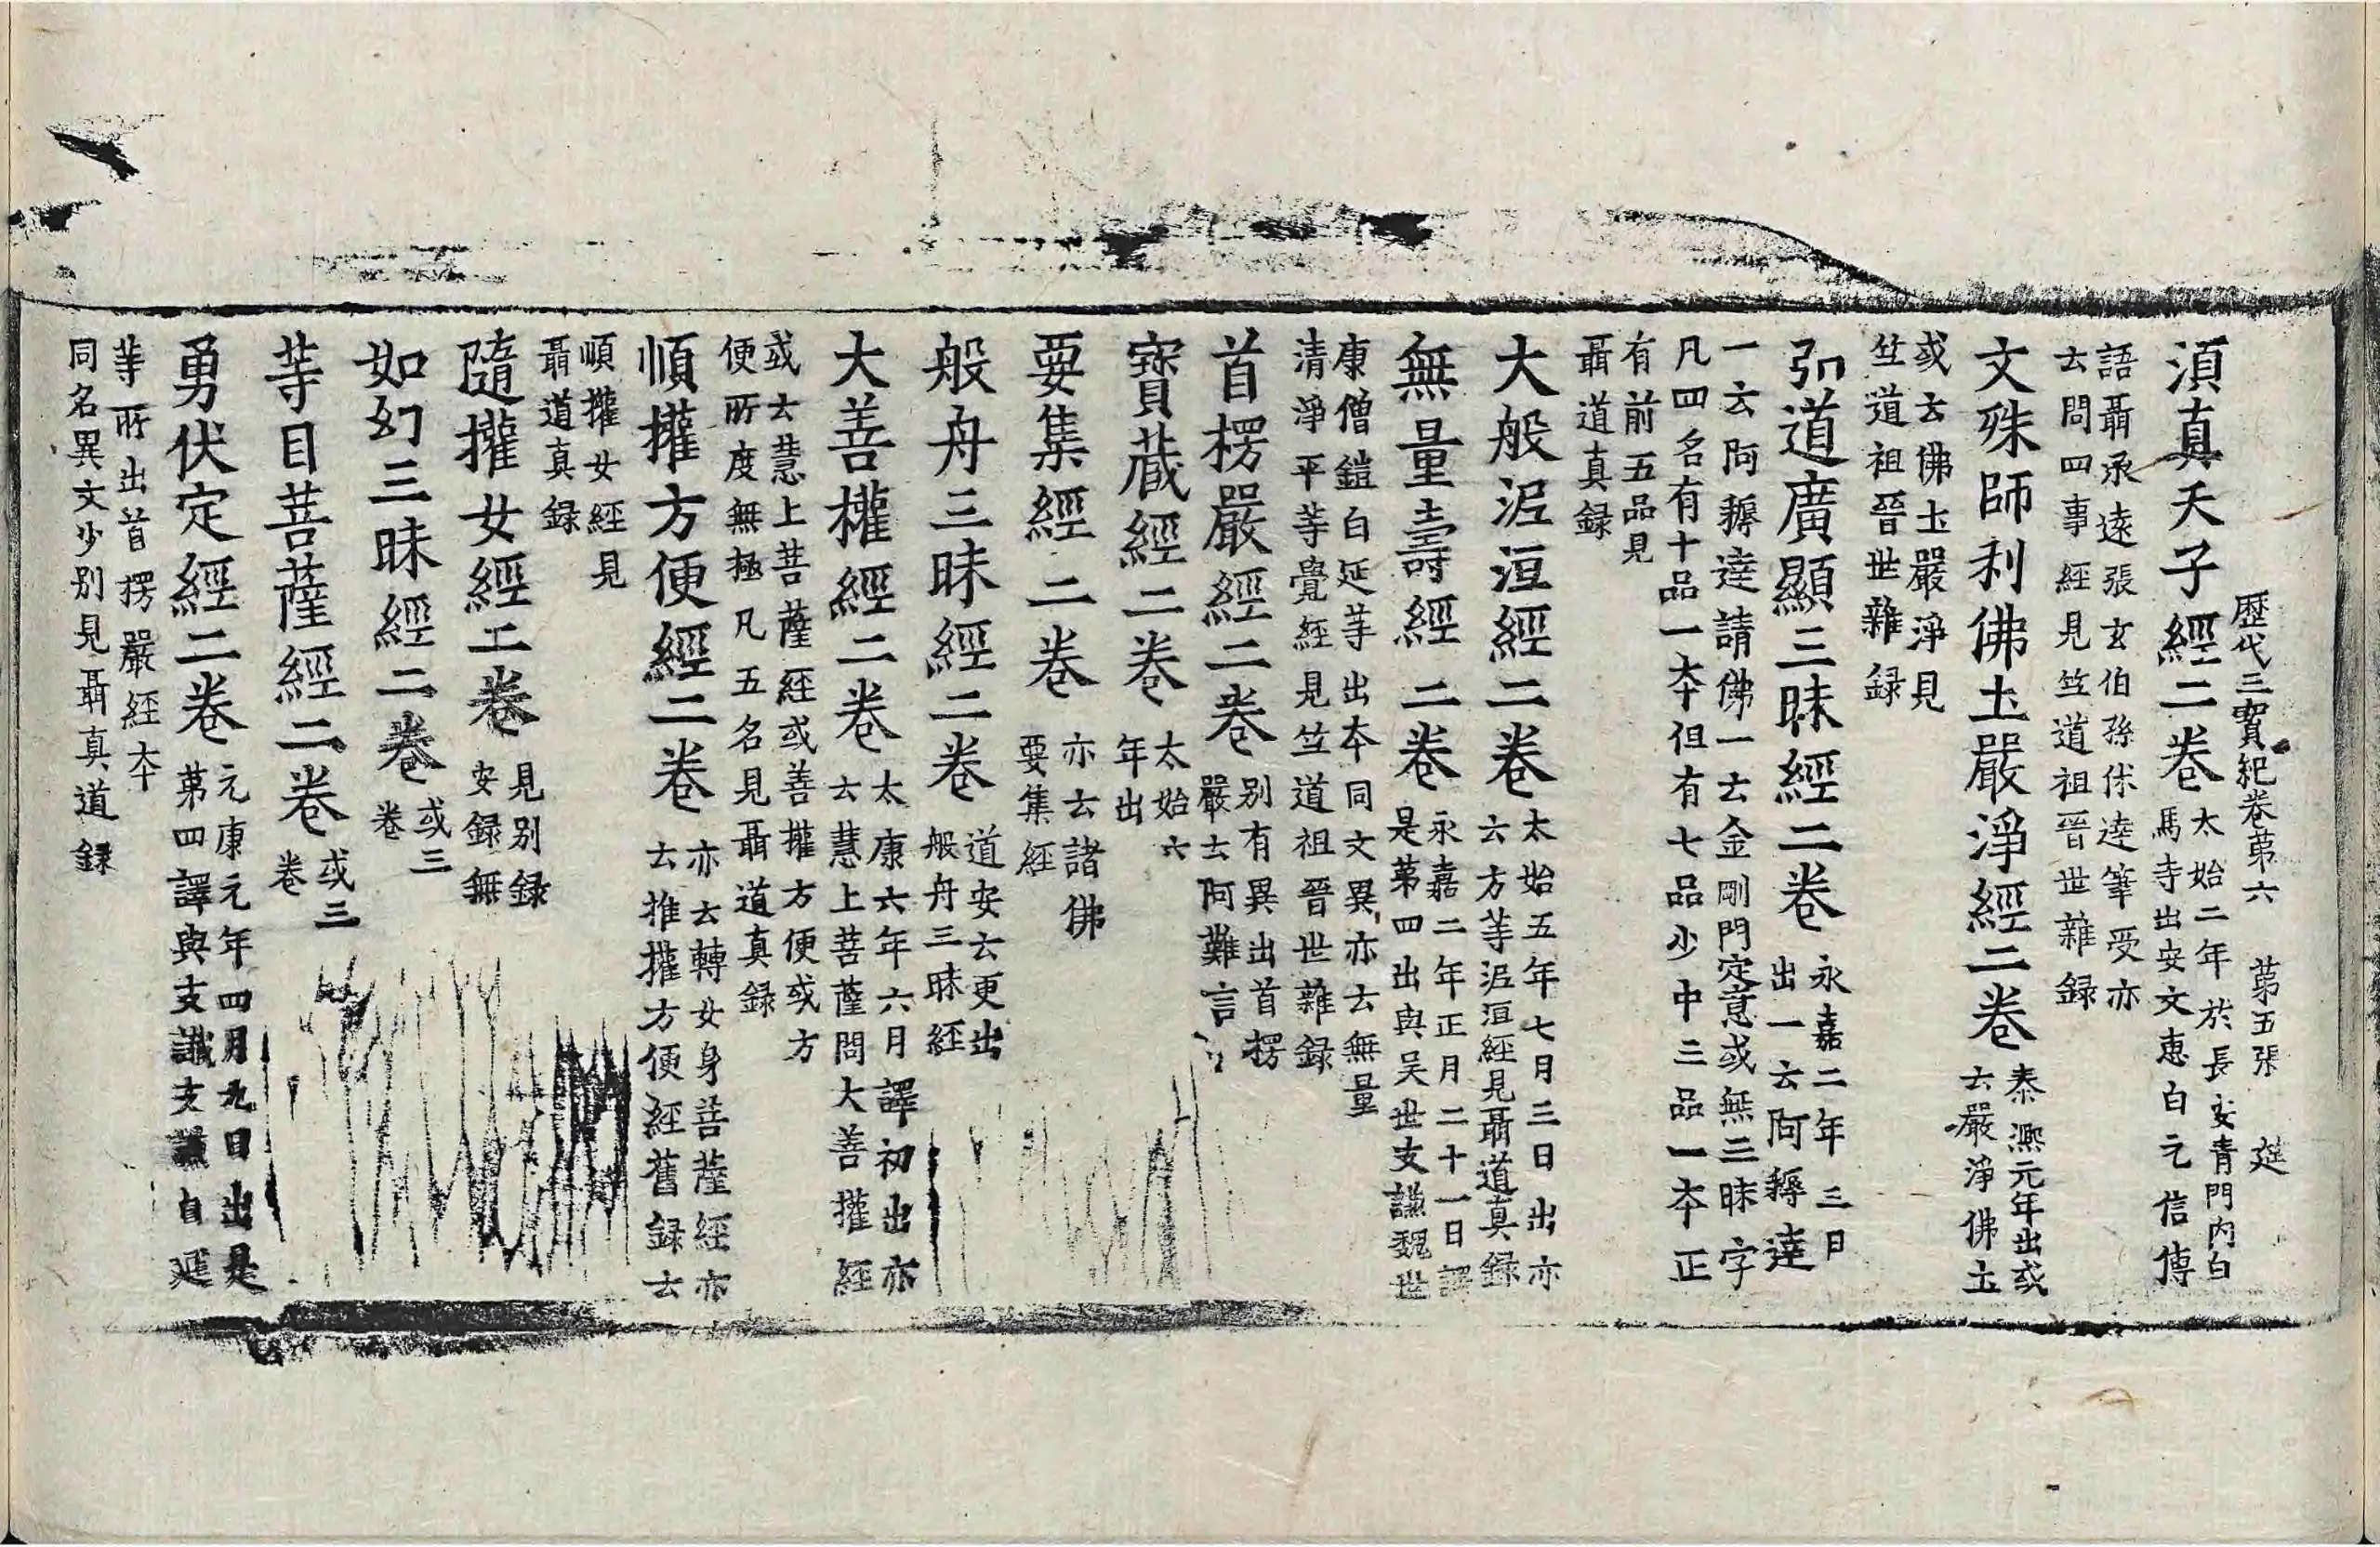 歷代三寶紀卷第六 第五張 莚
湏真天子經二卷
太始二年於長安青門内白
馬寺出安文惠白元信傳
語聶承逺張玄伯孫休逹筆受亦
云問四事經見竺道祖晉世雜録
文殊師利佛土嚴淨經二卷
泰熈元年出或
云嚴淨佛土
或云佛土嚴淨見
竺道祖晉世雜録
弘道廣顯三昧經二卷
永嘉二年三日
出一云阿耨達
一云阿耨達請佛一云金剛門定意或無三昧字
凡四名有十品一本但有七品少中三品一本正
有前五品見
聶道真録
大般泥洹經二卷
太始五年七月三日出亦
云方等泥洹經見聶道真録
無量壽經二卷
永嘉二年正月二十一日譯
是第四出與吴世支謙魏世
康僧鎧白延等出本同文異亦云無量
清淨平等覺經見竺道祖晉世雜録
首楞嚴經二卷
别有異出首楞
嚴云阿難言
寳藏經二卷
太始六
年出
要集經二卷
亦云諸佛
要集經
般舟三昧經二卷
道安云更出
般舟三昧經
大善權經二卷
太康六年六月譯初出亦
云慧上菩薩問大善攉經
或云慧上菩薩經或善攉方便或方
便所度無極凡五名見聶道真録
順攉方便經二卷
亦云轉女身菩薩經亦
云推攉方便經舊録云
順攉女經見
聶道真録
隨攉女經二卷
見别録
安録無
如幻三昧經二卷
或三
卷
等目菩薩經二卷
或三
卷
勇伏定經二卷
元康元年四月九日出是
第四譯與支讖支謙白延
等所出首楞嚴經本
同名異文少别見聶真道録